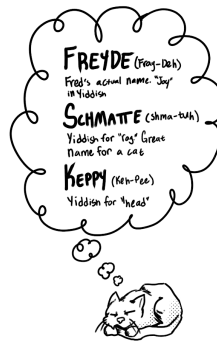 FREYDE (Fray-Deh)
Fred's actual name. "Joy"
in Yiddish
SCHMATTE (shma-tuh)
Yiddish for "rag" Great
name for a cat
KEPPY (Keh-Pee)
Yiddish for "head"